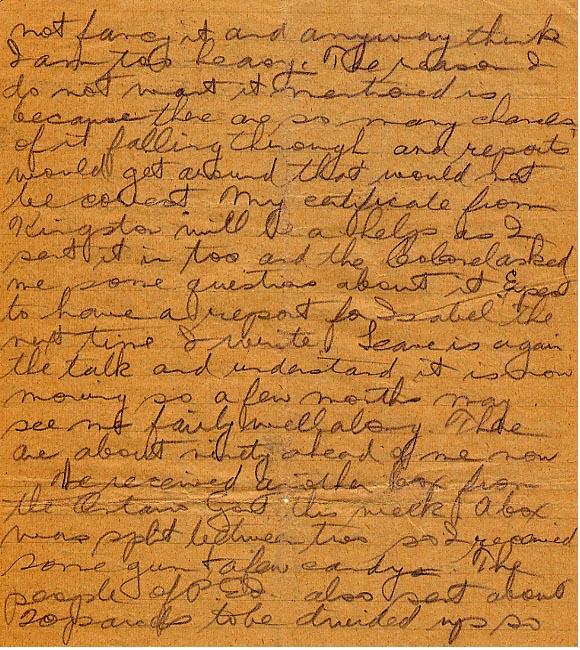 not fancy it and anyway think
I am too heavy. The reason I
do not want it mentioned is
because there are so many chances
of it falling through and reports
would get around that would not
be correct. My certificate from
Kingston will be a help as I
sent it in too and the Colonel asked
me some questions about it. Expect
to have a report for Isabel the
next time I write. Leave is again
the talk and understand it is now
moving so a few months may
see me fairly well along. There
are about ninety ahead of me now
We received another box from
the Ontario Govt this week. A box
was split between two so I received
some gum & a few candys. The
people of P.Ed. also sent about
20 parcels to be divided up so